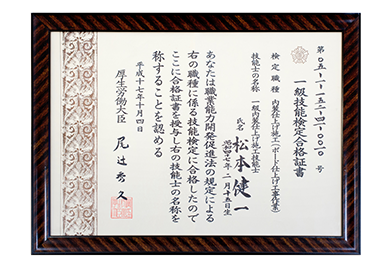 第〇五-一-一五二-四-〇〇一〇号
一級技能検定合格証書
検定職種 内装仕上げ施工（ボード仕上げ工事作業）
技能士の名称 一級内装仕上げ施工技能士
氏名 松本健一
あなたは職業能力開発促進法の規定による
右の職種に係る技能検定に合格したので
ここに合格証書を授与し右の技能士の名称を
称することを認める
平成十七年十月四日
厚生労働大臣 尾辻秀久